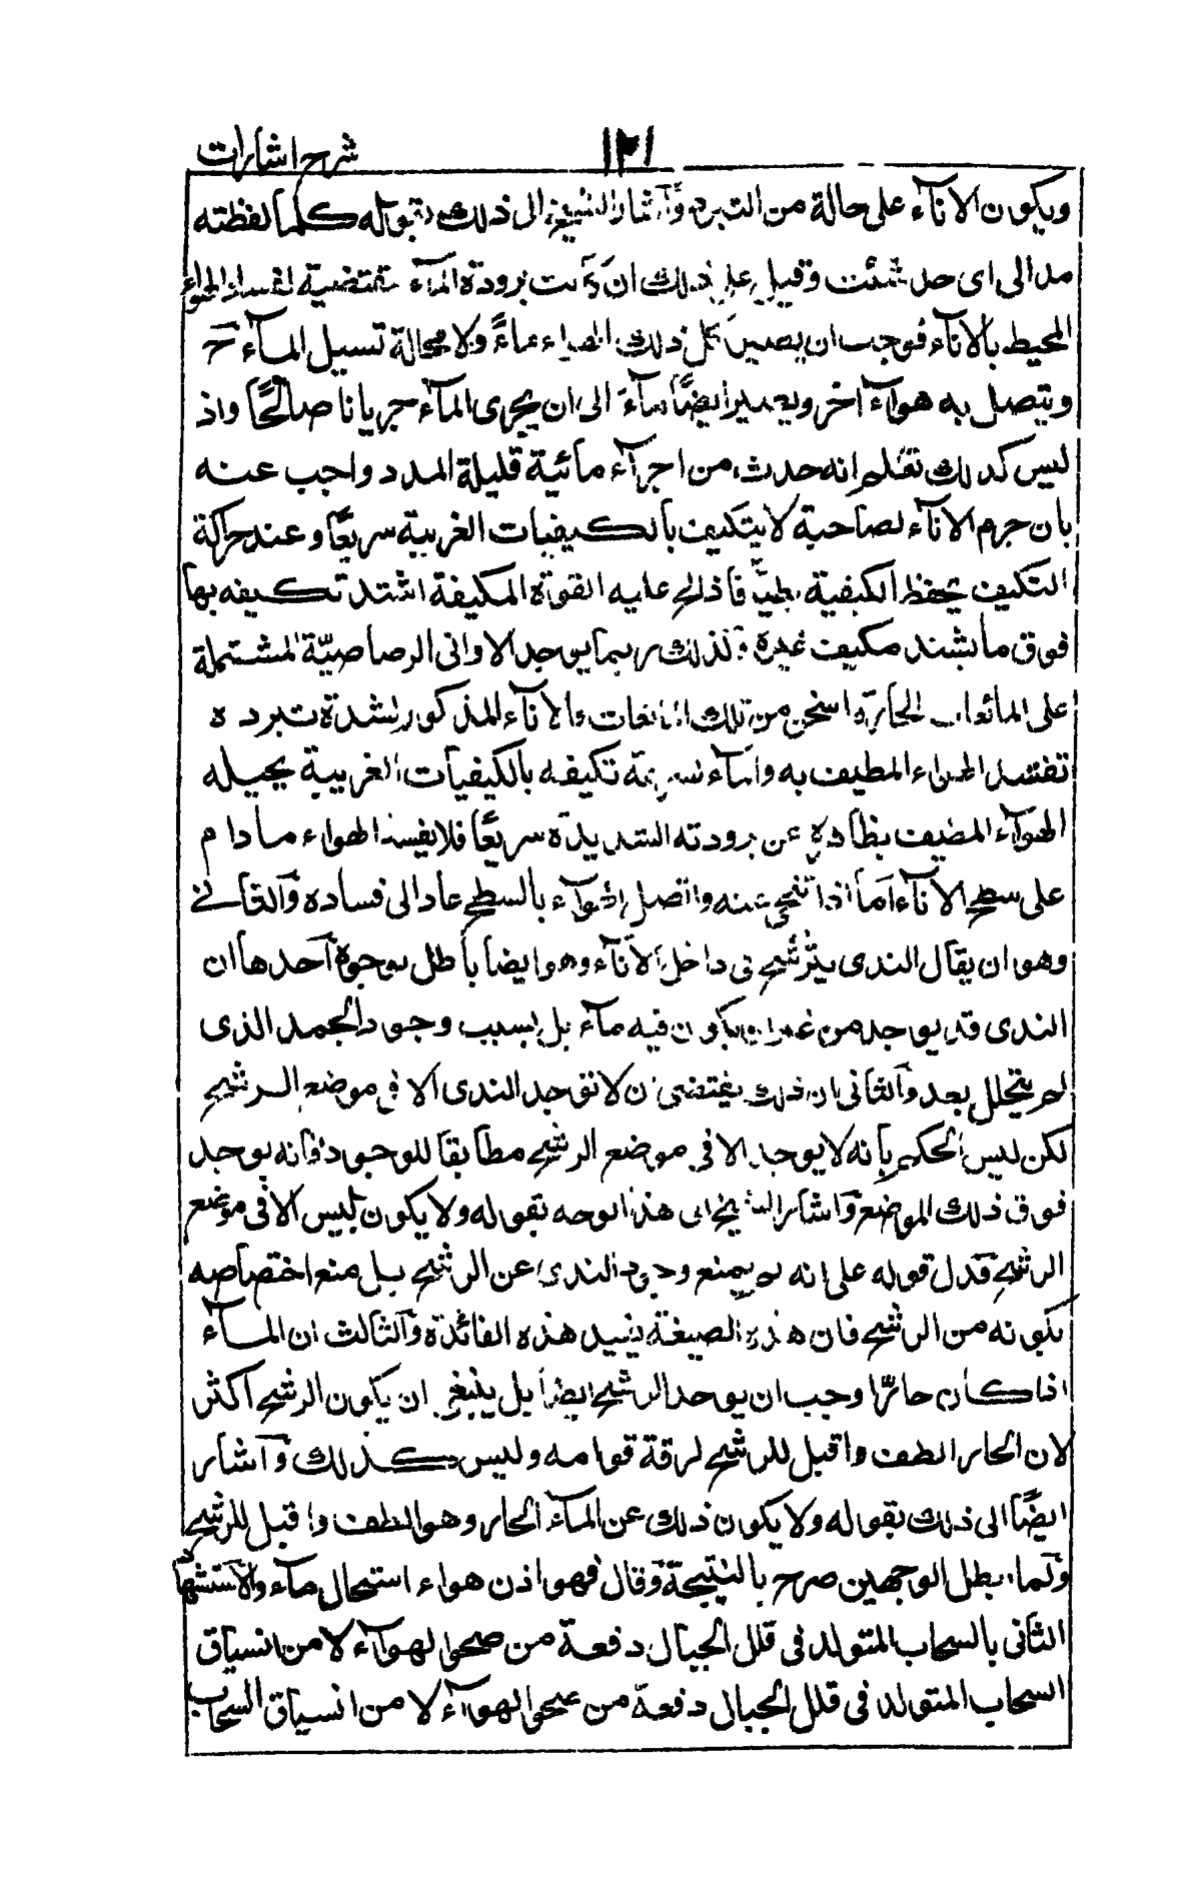 شرح اشارات ١٢١
ويكون الاناء على حالة من التبرد وأشار الشيخ الى ذلك بقوله كلما لفظته
مد الى اى حد شئت وقيل على ذلك ان كانت برودة الماء مقتضية لفساد الهواء
المحيط بالاناء فوجب ان يصير كل ذلك الهواء ماءً ولا محالة تسيل الماء ح
ويتصل به هواء اخر ويصير ايضًا ماء الى ان يجرى الماء جريانا صالحًا واذ
ليس كذلك نعلم انه حدث من اجزاء مائية قليلة المدد واجب عنه
بان جرم الاناء لصلابته لا يتكيف بالكيفيات الغريبة سريعًا وعند
التكيف يحفظ الكيفية بطيئًا فاذا عليه القوة المكيفة اشتد تكيفه بها
فوق ما يشتد مكيف غيره ولذلك ربما يوجد الاوانى الرصاصيّة المشتملة
على المائعات الحارة اسخن من تلك المائعات والاناء المذكور لشدة تبرده
تفسد الهواء المطيف به والماء تكيفه بالكيفيات الغريبة يحيله
الهواء المطيف بظاهره عن برودته الشديدة سريعًا فلا يفسد الهواء ما دام
على سطح الاناء اما اذا تنحى عنه واتصل الهواء بالسطح عاد الى فساده والثانى
وهو ان يقال الندى يترشح من داخل الاناء وهو ايضا باطل بوجوه احدها ان
الندى قد يوجد من غير ان يكون فيه ماء بل بسبب وجود الجمد الذى
لم يتحلل بعد والثانى ان ذلك يقتضى ان لا نوجد الندى الا فى موضع الرشح
لكن ليس الحكم بانه لا يوجد الا فى موضع الرشح مطابقا للوجود فانه يوجد
فوق ذلك الموضع واشار الشيخ الى هذا الوجه بقوله ولا يكون بليس الا فى موضع
الرشح فدل قوله على انه لم يمنع وجود الندى عن الرشح بل منع اختصاصه
بكونه من الرشح فان هذه الصيغة يفيد هذه الفائدة والثالث ان الماء
اذا كان حارًّا وجب ان يوجد الرشح ايضا بل ينبغى ان يكون الرشح اكثر
لان الحار الطف واقبل للرشح لرقة قوامه وليس كذلك واشار
ايضًا الى ذلك بقوله ولا يكون ذلك عن الماء الحار وهو الطف واقبل للرشح
ولما بطل الوجهين صرح بالنتيجة وقال فهو اذن هواء استحال ماء والاستشها
الثانى بالسحاب المتولد فى قلل الجبال دفعة من صحو الهواء لا من انسياق
السحاب المتولد فى قلل الجبال دفعة من صحو الهواء لا من انسياق السحاب